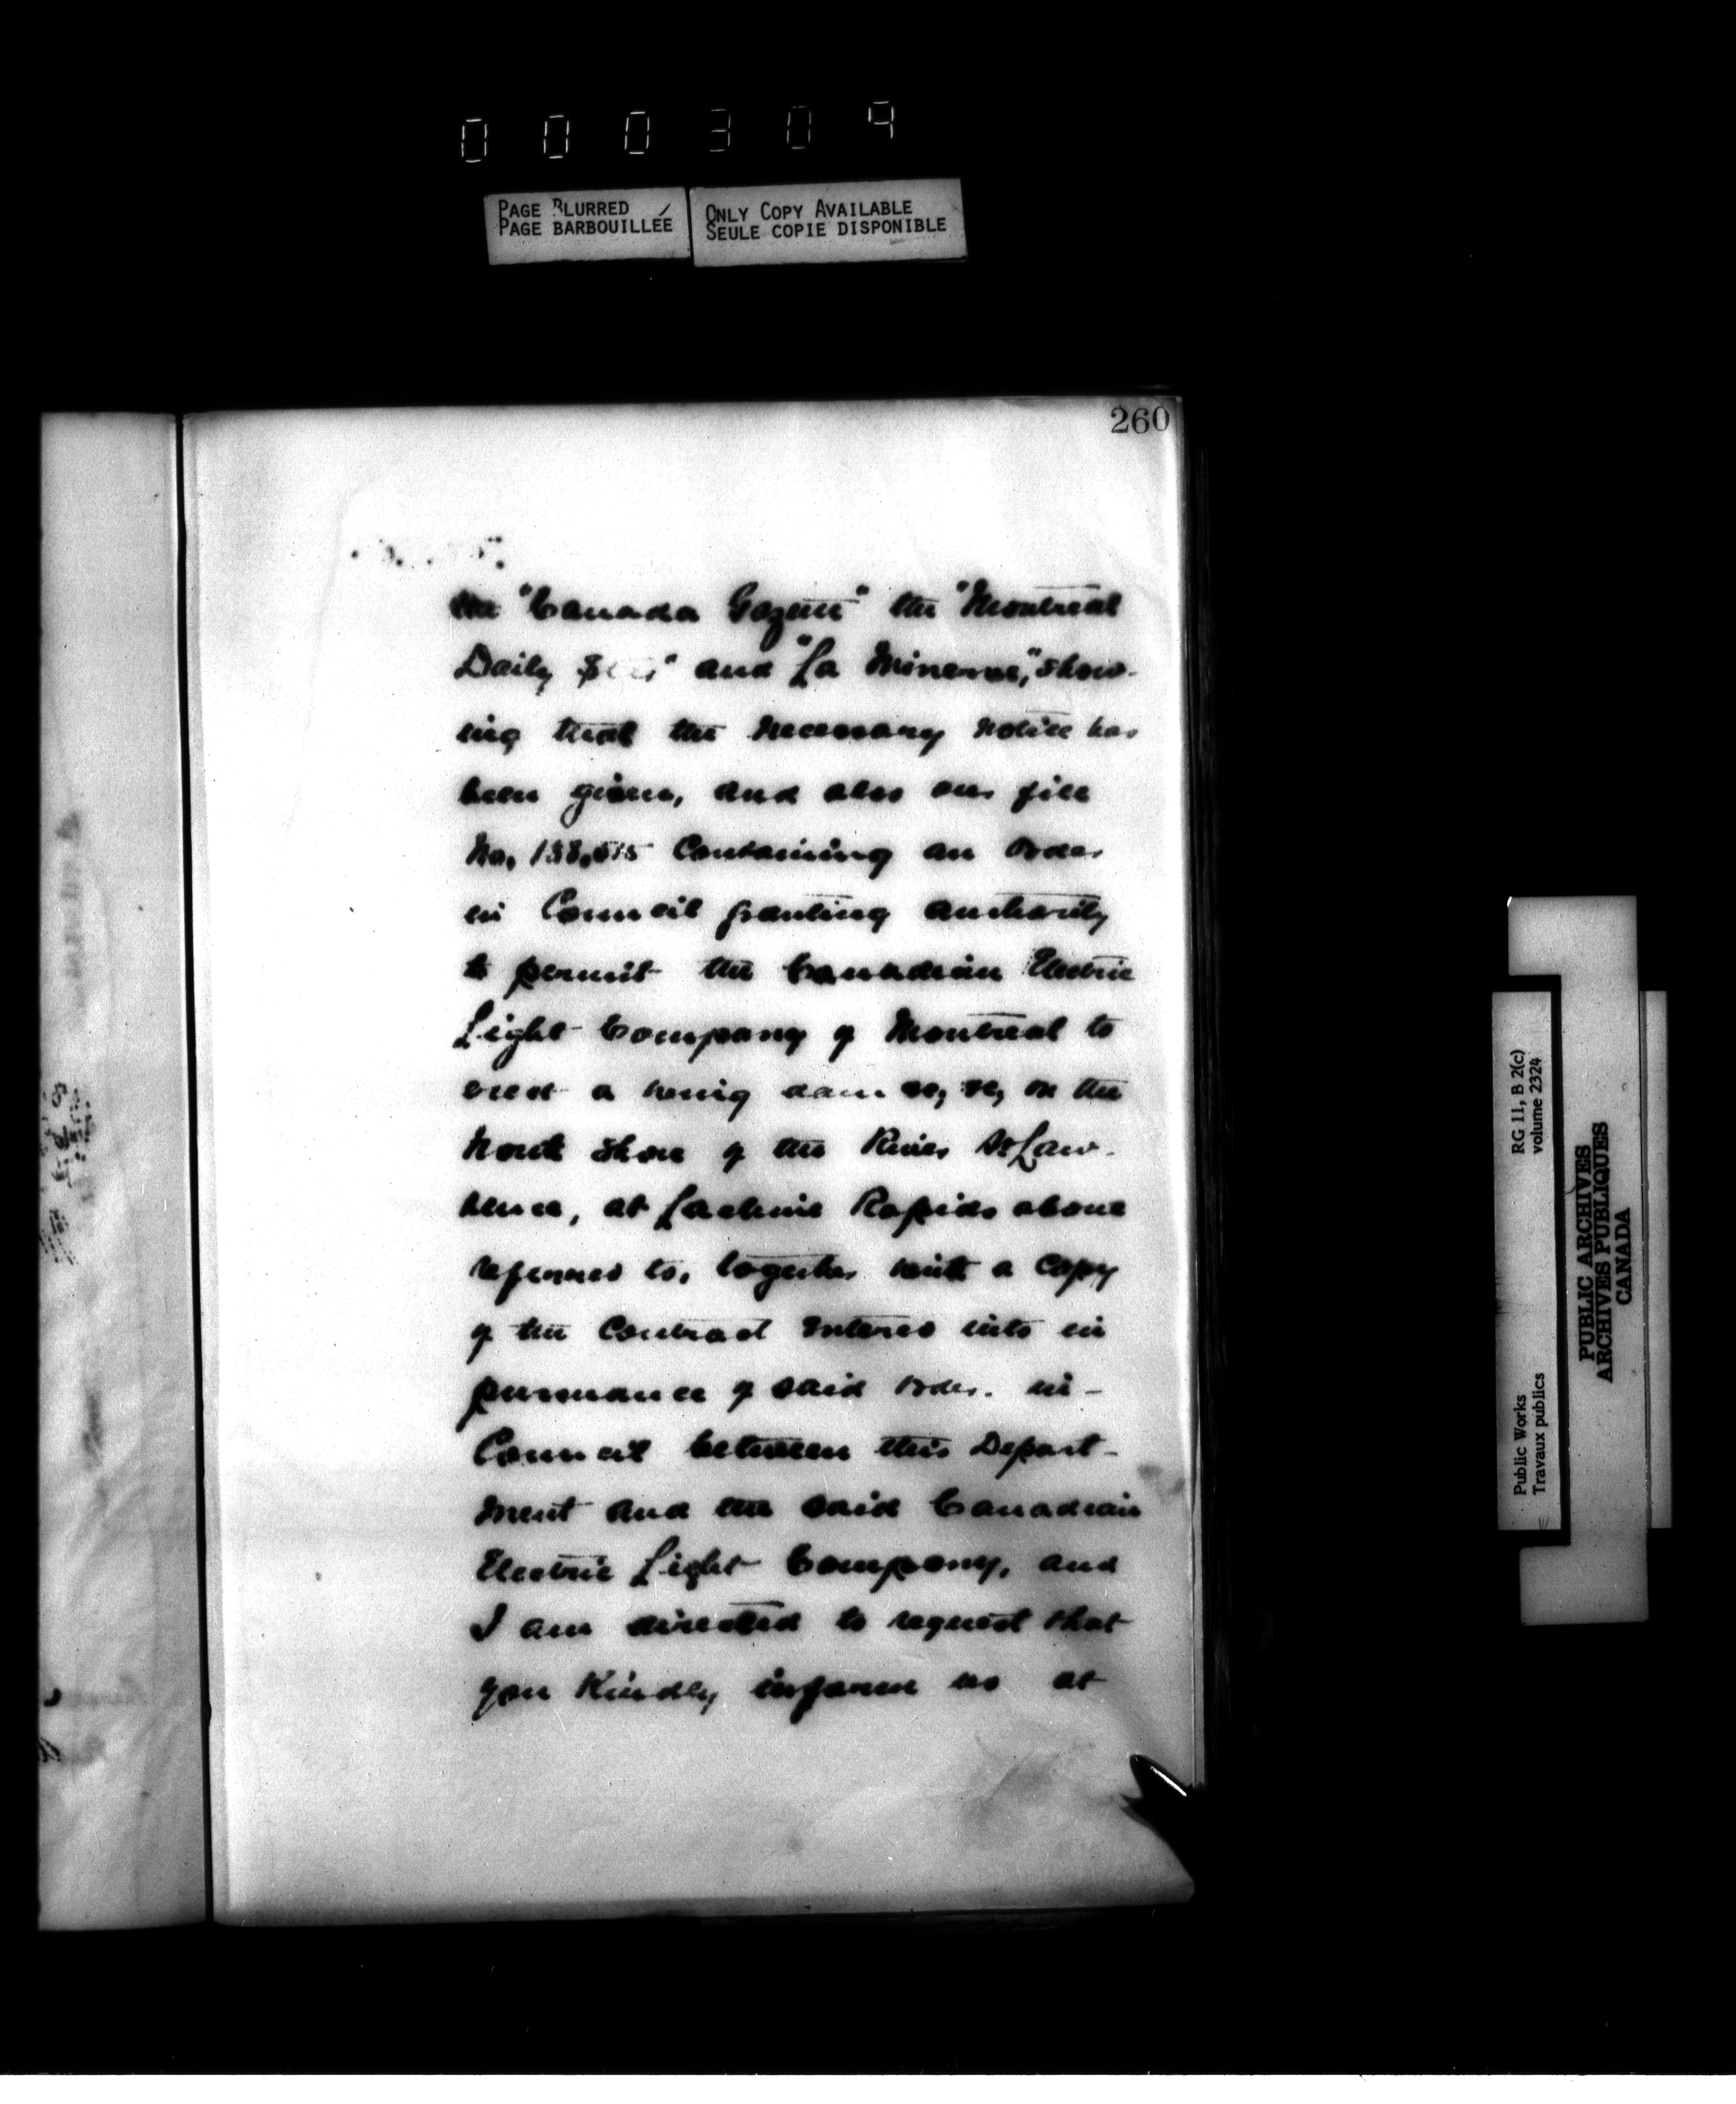 000309
PAGE BLURRED
PAGE BARBOUILLÉE
ONLY COPY AVAILABLE
SEULE COPIE DISPONIBLE
260
the "Canada Gazette" the "Montreal
Daily and "La Minerve," show-
ing that the necessary notice has
been given, and also our file
No, containing an Order
in Council granting authority
to permit the Canadian Electric
Light Company of Montreal to
erect a wing dam &c, &c, on the
North Shore of the River St Law-
rence, at Lachine Rapids above
referred to, together with a copy
of the Contract entered into in
pursuance of said Order in-
Council between this Depart-
ment and the said Canadian
Electric Light Company, and
I am directed to request that
you Kindly inform us at
RG 11, B 2(c)
volume 2324
Public Works
Travaux publics
PUBLIC ARCHIVES
ARCHIVES PUBLIQUES
CANADA